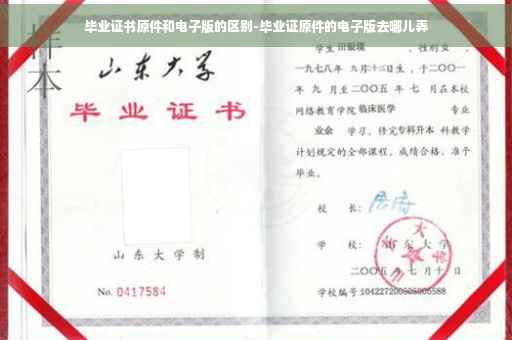 毕业证书原件和电子版的区别-毕业证原件的电子版去哪儿弄
样本
山东大学
毕业证书
山东大学制
No. 0417584
学生 田银瑞 ,性别 女 ,
一九七八年 九月十三日生,于二〇〇一
年 九 月至二〇〇五 年 七 月在本校
网络教育学院 临床医学 专业
业余 学习,修完 专科升本 科教学
计划规定的全部课程,成绩合格,准予
毕业。
校 长:
学 校: 山东大学
二〇〇五 年 七 月 十 日
学校编号: